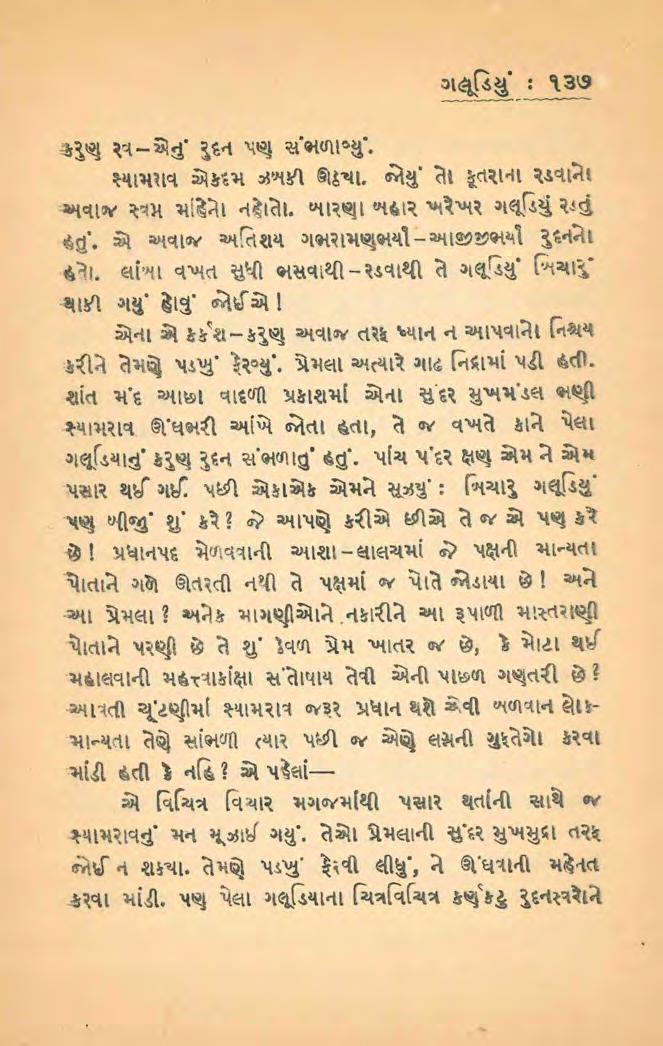 ગલૂડિયું : ૧૩૭
કરુણ રવ–એનું રુદન પણ સંભળાવ્યું.
શ્યામરાવ એકદમ ઝબકી ઊઠ્યા. જોયું તો કૂતરાના રડવાનો
અવાજ સ્વપ્ન માંહેનો નહોતો. બારણા બહાર ખરેખર ગલૂડિયું રડતું
હતું. એ અવાજ અતિશય ગભરામણભર્યા–આજીજીભર્યા રુદનનો
હતો. લાંબા વખત સુધી ભસવાથી–રડવાથી તે ગલૂડિયું બિચારું
થાકી ગયું હોવું જોઈએ !
એના એ કર્કશ–કરુણ અવાજ તરફ ધ્યાન ન આપવાનો નિશ્ચય
કરીને તેમણે પડખું ફેરવ્યું. પ્રેમલા અત્યારે ગાઢ નિદ્રામાં પડી હતી.
શાંત મંદ આછા વાદળી પ્રકાશમાં એના સુંદર મુખમંડલ ભણી
શ્યામરાવ ઊંઘભરી આંખે જોતા હતા, તે જ વખતે કાને પેલા
ગલૂડિયાનું કરુણ રુદન સંભળાતું હતું. પાંચ પંદર ક્ષણ એમ ને એમ
પસાર થઈ ગઈ. પછી એકાએક એમને સૂઝયું : બિચારુ ગલૂડિયું
પણ બીજું શું કરે? જે આપણે કરીએ છીએ તે જ એ પણ કરે
છે! પ્રધાનપદ મેળવવાની આશા–લાલચમાં જે પક્ષની માન્યતા
પોતાને ગળે ઊતરતી નથી તે પક્ષમાં જ પોતે જોડાયા છે! અને
આ પ્રેમલા? અનેક માગણીઓને નકારીને આ રૂપાળી માસ્તરાણી
પોતાને પરણી છે તે શું કેવળ પ્રેમ ખાતર જ છે, કે મોટા થઈ
મહાલવાની મહત્ત્વાકાંક્ષા સંતોષાય તેવી એની પાછળ ગણતરી છે?
આવતી ચૂંટણીમાં શ્યામરાવ જરૂર પ્રધાન થશે એવી બળવાન લોક-
માન્યતા તેણે સાંભળી ત્યાર પછી જ એણે લગ્નની ગુફતેગો કરવા
માંડી હતી કે નહિ? એ પહેલાં—
એ વિચિત્ર વિચાર મગજમાંથી પસાર થતાંની સાથે જ
શ્યામરાવનું મન મૂઝાઈ ગયું. તેઓ પ્રેમલાની સુંદર મુખમુદ્રા તરફ
જોઈ ન શક્યા. તેમણે પડખું ફેરવી લીધું, ને ઊંઘવાની મહેનત
કરવા માંડી. પણ પેલા ગલૂડિયાના ચિત્રવિચિત્ર કર્ણકટુ રુદનસ્વરોને